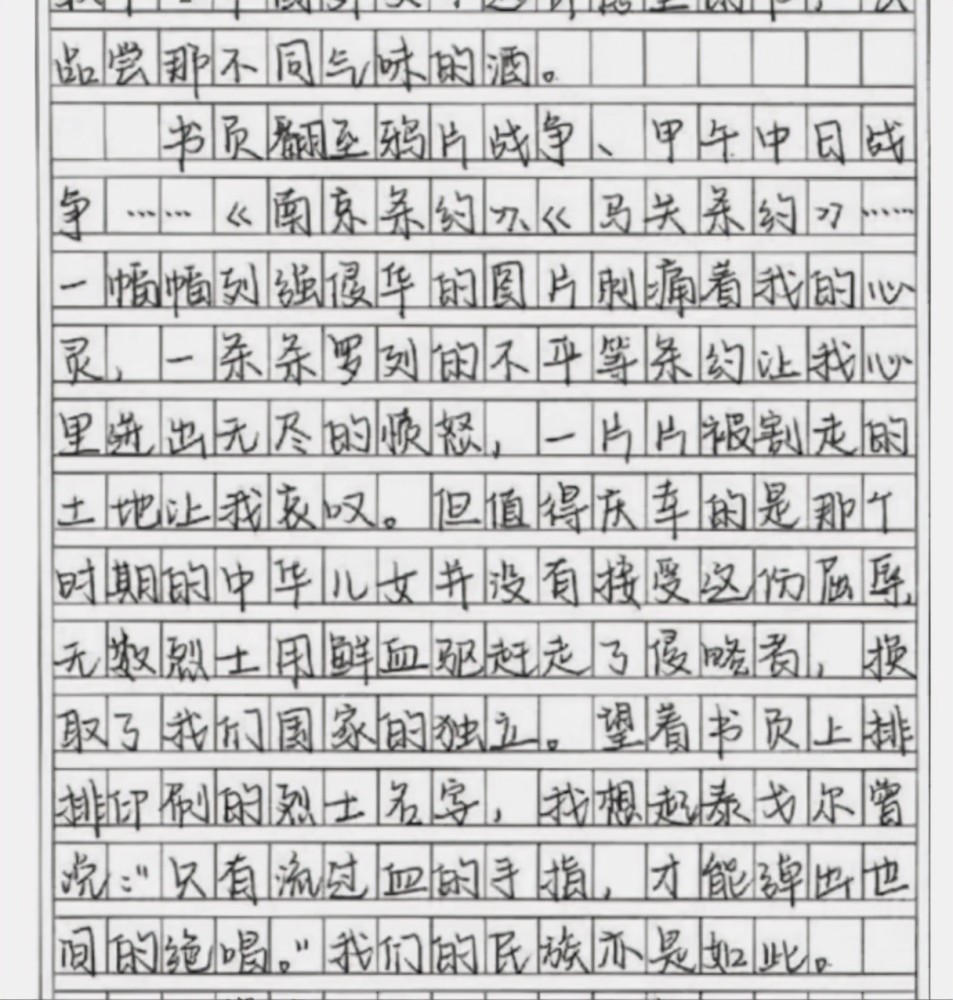 品尝那不同气味的酒。
书页翻至鸦片战争、甲午中日战
争……《南京条约》、《马关条约》……
一幅幅列强侵华的图片刺痛着我的心
灵,一条条罗列的不平等条约让我心
里迸出无尽的愤怒,一片片被割走的
土地让我哀叹。但值得庆幸的是那个
时期的中华儿女并没有接受这份屈辱,
无数烈士用鲜血驱赶走了侵略者,换
取了我们国家的独立。望着书页上排
排印刷的烈士名字,我想起泰戈尔曾
说:“只有流过血的手指,才能弹出世
间的绝唱。”我们的民族亦是如此。